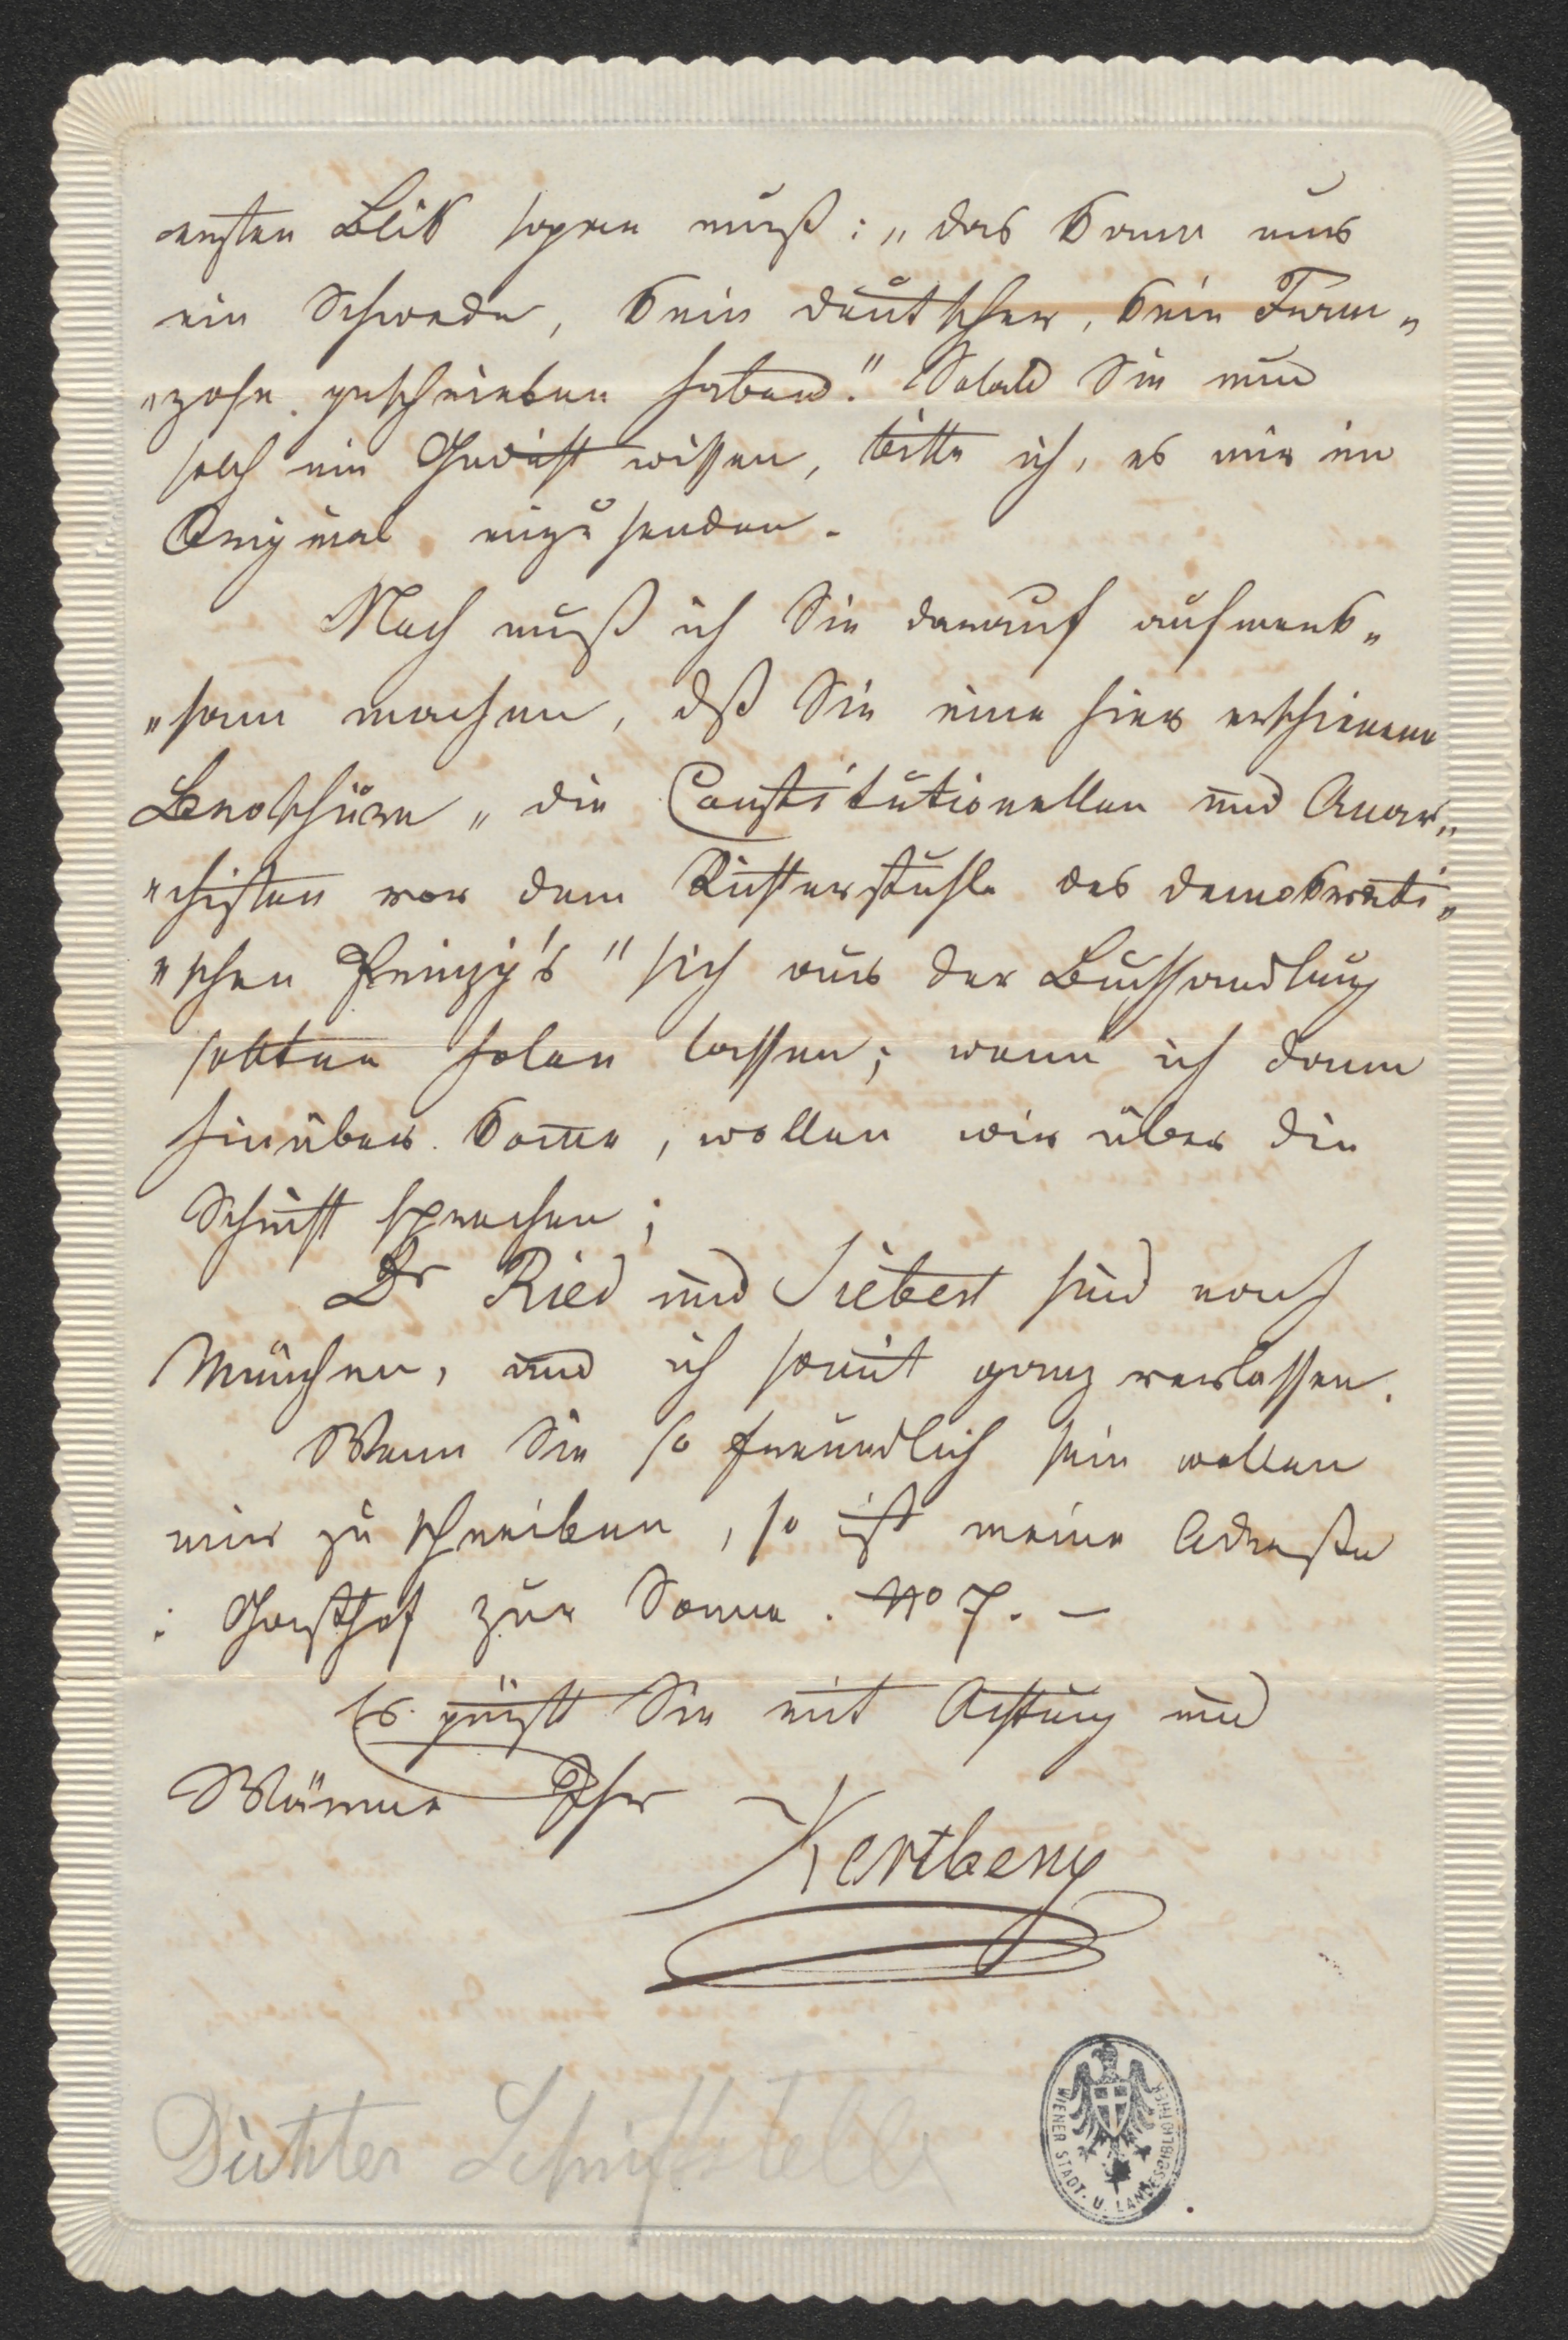 ersten Blik sagen muß: „das kann nur
ein Schwede, kein deutscher, kein Fran„
„zose geschrieben haben." Sobald Sie nun
solch ein Gedicht wissen, bitte ich, es mir im
Original einzusenden.
Noch muß ich Sie darauf aufmerk„
„sam machen, dß Sie eine hier erschienene
Broschüre „die Constitutionellen und Anar„
„chisten vor dem Richterstuhle des demokrati„
„schen Prinzip's" sich aus der Buchhandlung
sollten holen lassen; wenn ich dann
hinüber kom̄e, wollen wir über die
Schrift sprechen;
Dr Ried und Siebert sind nach
München, und ich somit ganz verlassen.
Wenn Sie so freundlich sein wollen
mir zu schreiben, so ist meine Adresse
: Gasthof zur Sonne. No 7. –
Es grüßt Sie mit Achtung und
Wärme Ihr
Kertbeny
Dichter Schriftsteller
WIENER STADT- U. LANDESBIBLIOTHEK